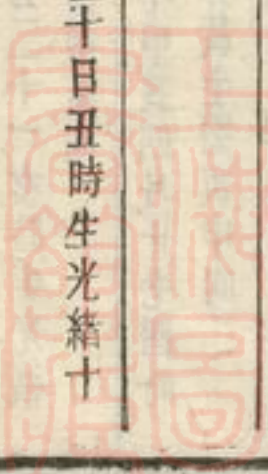 十日丑時生光緒十